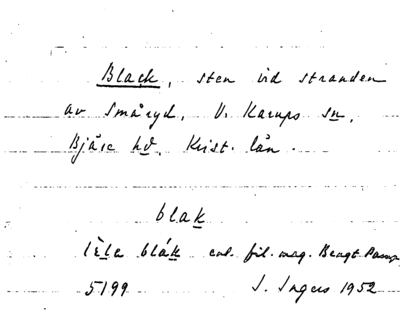 Black, sten vid stranden
av Småryd, V. Karups sn,
Bjäre hd. Krist. län.
blak
lèla blák enl. fil. mag. Bengt Pamp
5199 I. Ingers 1952